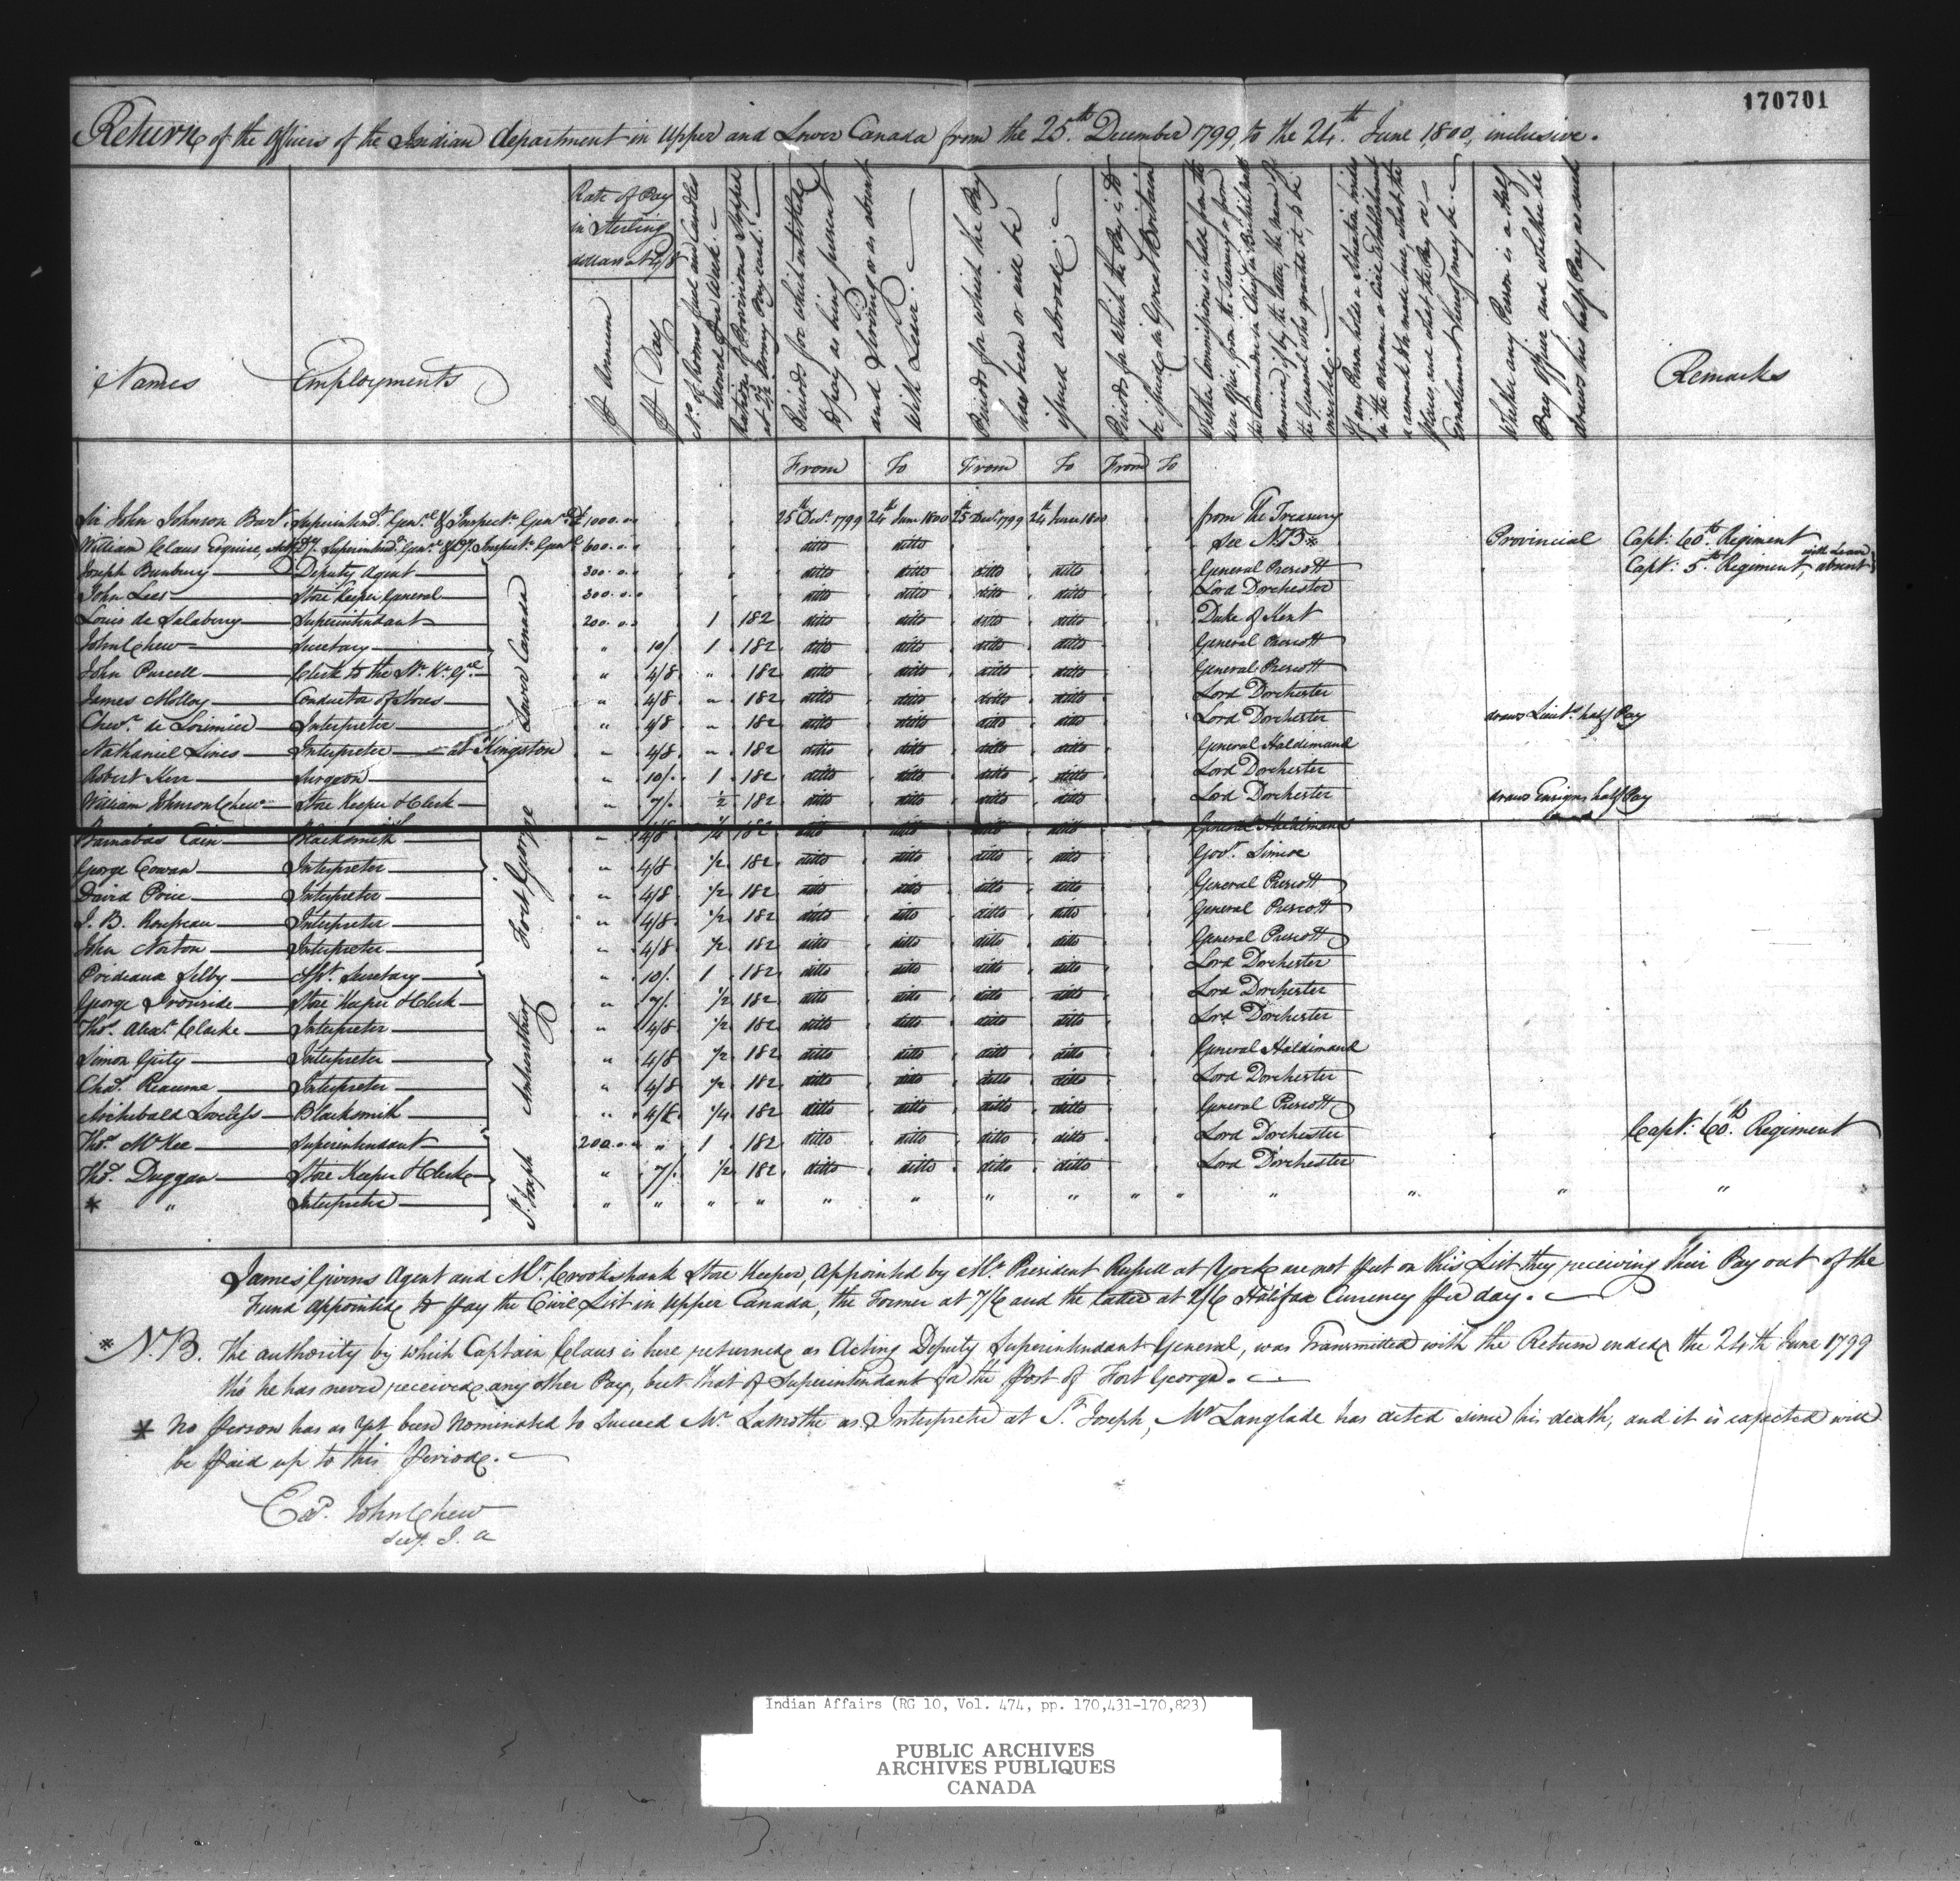 170701
Return of the Officers of the Indian department in Upper and Lower Canada from the 25th December 1799, to the 24th June 1800, inclusive.
Names
Employments
Rate of Pay in Sterling dollars at 4/8
⅌ Annum
⅌ Day
No. of Rooms fuel and Candles allowed ⅌ Week
Rations of Provisions stopped at 2½ Sterling each
Periods for which entitled to pay as being present and serving or as absent with Leave.
Periods for which the Pay has been or will be issued abroad
Periods for which the Pay is to be issued in Great Britain
Whether Commissions is held from the War Office, from the Treasury or from the Commander in Chief in British North America, if by the latter, the name of the General who granted it, to be inserted
If any Person holds a Situation besides in the ordnance or Civil Establishment a remark to be made here, what the Place, and what the Pay or Emoluments thereof may be
Whether any Person is a Half Pay Officer and whether he draws his half Pay as such
Remarks
From To From To From To
Sir John Johnson Bart. Superintendt. Genl. & Inspectr. Genl. £1000.. 25th Decr. 1799 24th June 1800 25 Decr. 1799 24 June 1800 from The Treasury
William Claus Esquire, Actg. Dy. Superintendt. Genl. & Dy. Inspectr. Genl. 600.. ditto ditto See NB* Provincial Capt: 60th Regiment
Joseph Bunbury Deputy Agent 300.. ditto ditto ditto ditto General Prescott Capt: 5th Regiment, absent with Leave
John Lees Store Keeper General 300.. ditto ditto ditto ditto Lord Dorchester
Lower Canada
Louis de Salaberry Superintendant 200.. 1 182 ditto ditto ditto ditto Duke of Kent
John Chew Secretary " 10/. 1 182 ditto ditto ditto ditto General Prescott
John Purcell Clerk to the Sr. Kr. Gl. " 4/8 " 182 ditto ditto ditto ditto General Prescott
James Molloy Conductor of Stores " 4/8 " 182 ditto ditto ditto ditto Lord Dorchester
Chevr. de Lorimier Interpreter " 4/8 " 182 ditto ditto ditto ditto Lord Dorchester draws Lieuts. half Pay
Nathaniel Lines Interpreter at Kingston " 4/8 " 182 ditto ditto ditto ditto General Haldimand
Robert Kerr Surgeon " 10/. 1 182 ditto ditto ditto ditto Lord Dorchester
William Johnson Chew Store Keeper & Clerk " 7/. ½ 182 ditto ditto ditto ditto Lord Dorchester draws Ensigns half Pay
Fort George
Barnabas Cain Blacksmith " 4/8 ¼ 182 ditto ditto ditto ditto General Haldimand
George Cowan Interpreter " 4/8 ½ 182 ditto ditto ditto ditto Govr. Simcoe
David Price Interpreter " 4/8 ½ 182 ditto ditto ditto ditto General Prescott
J. B. Rousseau Interpreter " 4/8 ½ 182 ditto ditto ditto ditto General Prescott
John Norton Interpreter " 4/8 ½ 182 ditto ditto ditto ditto General Prescott
Prideaux Selby Asst. Secretary " 10/. 1 182 ditto ditto ditto ditto Lord Dorchester
George Ironside Store Keeper & Clerk " 7/. ½ 182 ditto ditto ditto ditto Lord Dorchester
Thos. Alexr. Clarke Interpreter " 4/8 ½ 182 ditto ditto ditto ditto Lord Dorchester
Amherstburg
Simon Girty Interpreter " 4/8 ½ 182 ditto ditto ditto ditto General Haldimand
Chas. Reaume Interpreter " 4/8 ½ 182 ditto ditto ditto ditto Lord Dorchester
Archibald Loveless Blacksmith " 4/8 ¼ 182 ditto ditto ditto ditto General Prescott
Thos. McKee Superintendant 200.. " 1 182 ditto ditto ditto ditto Lord Dorchester Capt: 60th Regiment
Thos. Duggan Store Keeper & Clerk " 7/. ½ 182 ditto ditto ditto ditto Lord Dorchester
St. Joseph
* " Interpreter " " " " " " " " " " " " " "
James Givens Agent and Mr. Crookshank Store Keeper, Appointed by Mr. President Russell at York are not put on this List they receiving their Pay out of the
Fund appointed to pay the Civil List in Upper Canada, the Former at 7/6 and the latter at 2/6 Halifax Currency per day.
* N.B. The authority by which Captain Claus is here returned as Acting Deputy Superintendant General, was Transmitted with the Return ended the 24th June 1799
tho he has never received any other Pay, but that of Superintendant for the Post of Fort George.
* No person has as yet been nominated to Succeed Mr. Lamothe as Interpreter at St. Joseph, Mr Langlade has acted since his death, and it is expected will
be paid up to this period.
John Chew
Secy. I. A
Indian Affairs (RG 10, Vol. 474, pp. 170,431-170,823)
PUBLIC ARCHIVES
ARCHIVES PUBLIQUES
CANADA